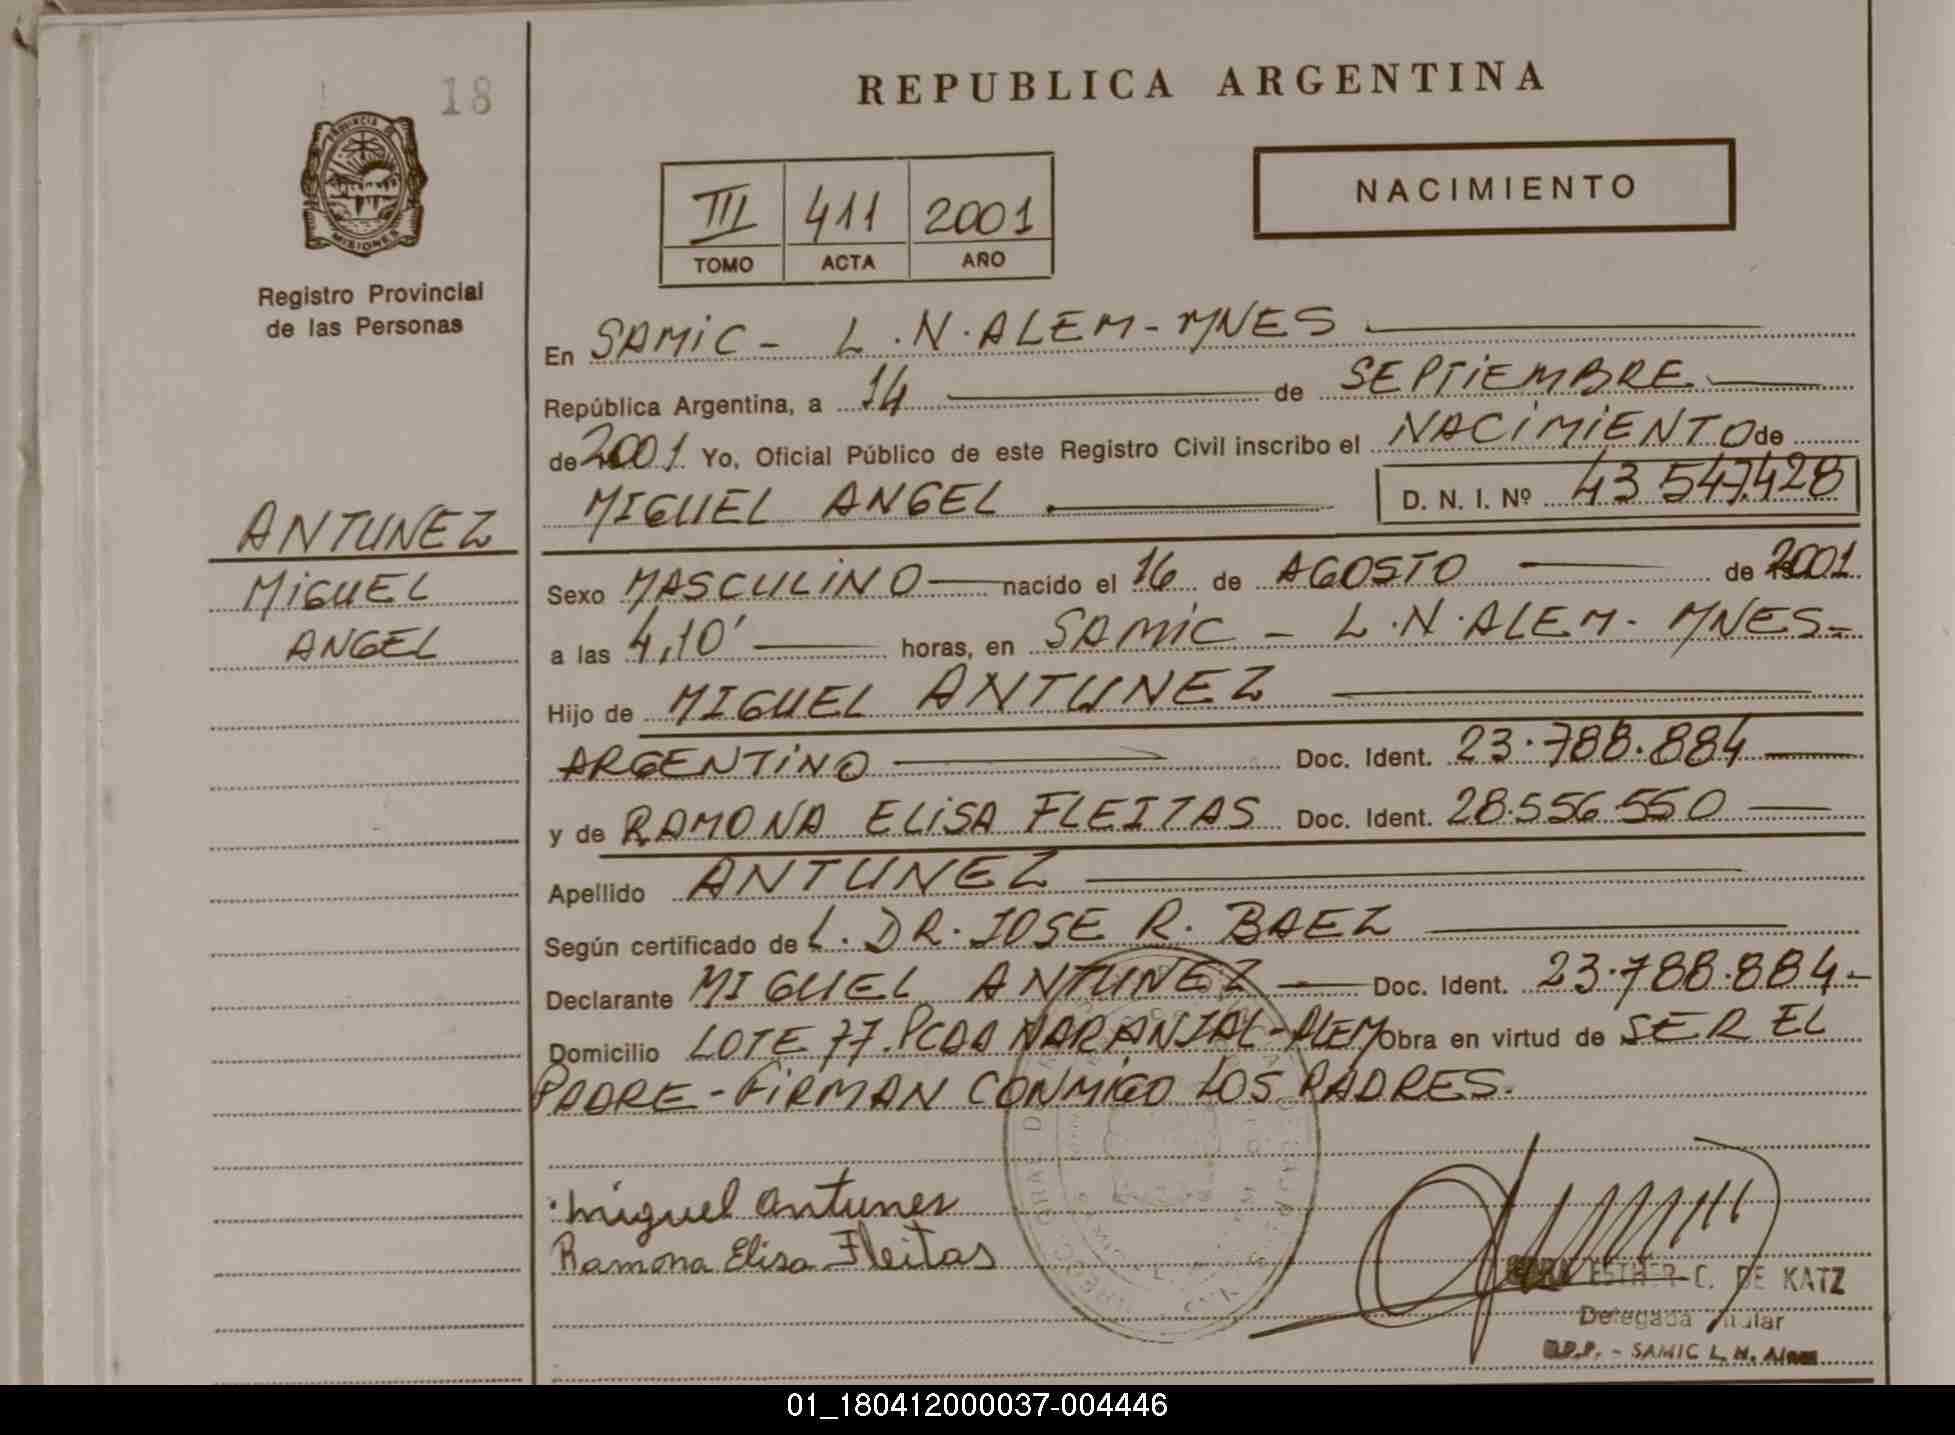 18
PROVINCIA DE
MISIONES
Registro Provincial
de las Personas
REPUBLICA ARGENTINA
III 411 2001
TOMO ACTA AÑO
NACIMIENTO
En SAMIC - L.N.ALEM-MNES
República Argentina, a 14 de SEPTIEMBRE
de 2001 Yo, Oficial Público de este Registro Civil inscribo el NACIMIENTO de
MIGUEL ANGEL D. N. I. Nº 43 547.428
ANTUNEZ
MIGUEL
ANGEL
Sexo MASCULINO nacido el 16 de AGOSTO de 2001
a las 4,10' horas, en SAMIC - L.N.ALEM- MNES-
Hijo de MIGUEL ANTUNEZ
ARGENTINO Doc. Ident. 23.788.884
y de RAMONA ELISA FLEITAS Doc. Ident. 28.556.550
Apellido ANTUNEZ
Según certificado de L. DR. JOSE R. BAEZ
Declarante MIGUEL ANTUNEZ Doc. Ident. 23.788.884-
Domicilio LOTE 77. PCDA NARANJAL-ALEM Obra en virtud de SER EL
PADRE-FIRMAN CONMIGO LOS PADRES.
Miguel Antunes
Ramona Elisa Fleitas
ESTHER C. DE KATZ
Delegada Titular
- SAMIC L. N. Alem
01_180412000037-004446